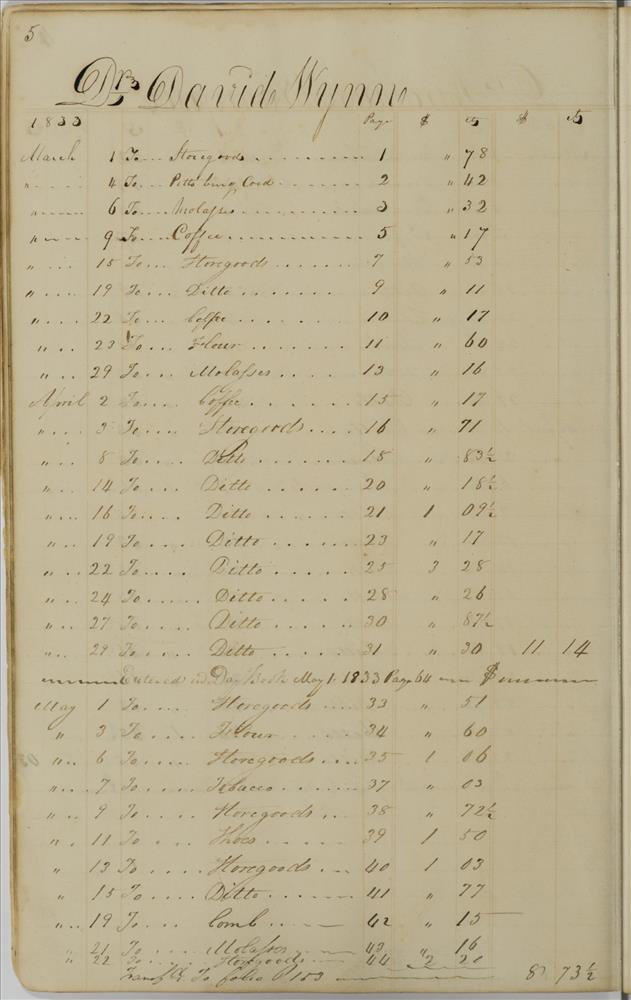 5
Dr. David Wynne
1833 Page $ cts $ cts
March 1 To .... Storegoods .......... 1 " 78
" ..... 4 To .... Pittsburg Cord ....... 2 " 42
" ..... 6 To .... Molasses ......... 3 " 32
" ..... 9 To .... Coffee ............ 5 " 17
" .... 15 To ... Storegoods ....... 7 " 53
" .... 19 To ... Ditto ....... 9 " 11
" ... 22 To ... Coffee ....... 10 " 17
" .. 23 To ... Flour ........ 11 " 60
" .. 29 To ... Molasses .... 13 " 16
April 2 To .... Coffee ...... 15 " 17
" ... 3 To .... Storegoods .... 16 " 71
" .. 8 To .... Ditto ...... 18 " 83½
" .. 14 To .... Ditto ...... 20 " 18½
" ... 16 To .... Ditto ..... 21 1 09½
" .. 19 To .... Ditto ...... 23 " 17
" .. 22 To .... Ditto ..... 25 3 28
" .. 24 To ..... Ditto ..... 28 " 26
" .. 27 To .... Ditto ..... 30 " 87½
" .. 29 To .... Ditto .... 31 " 30 11 14
Entered in Day Book May 1. 1833 Page 64 $
May 1 To .... Storegoods .... 33 " 51
" 3 To ..... Flour ..... 34 " 60
" .. 6 To .... Storegoods .... 35 1 06
" .. 7 To .... Tobacco ...... 37 " 03
" .. 9 To .... Storegoods .. 38 " 72½
" .. 11 To .... Shoes ..... 39 1 50
" .. 13 To ..... Storegoods ... 40 1 03
" 15 To ..... Ditto ...... 41 " 77
" .. 19 To .... Comb .... 42 " 15
" 21 To ..... Molasses .... 43 " 16
" 22 To ..... Storegoods .... 44 2 20
Transfd. To folio 153 8 73½